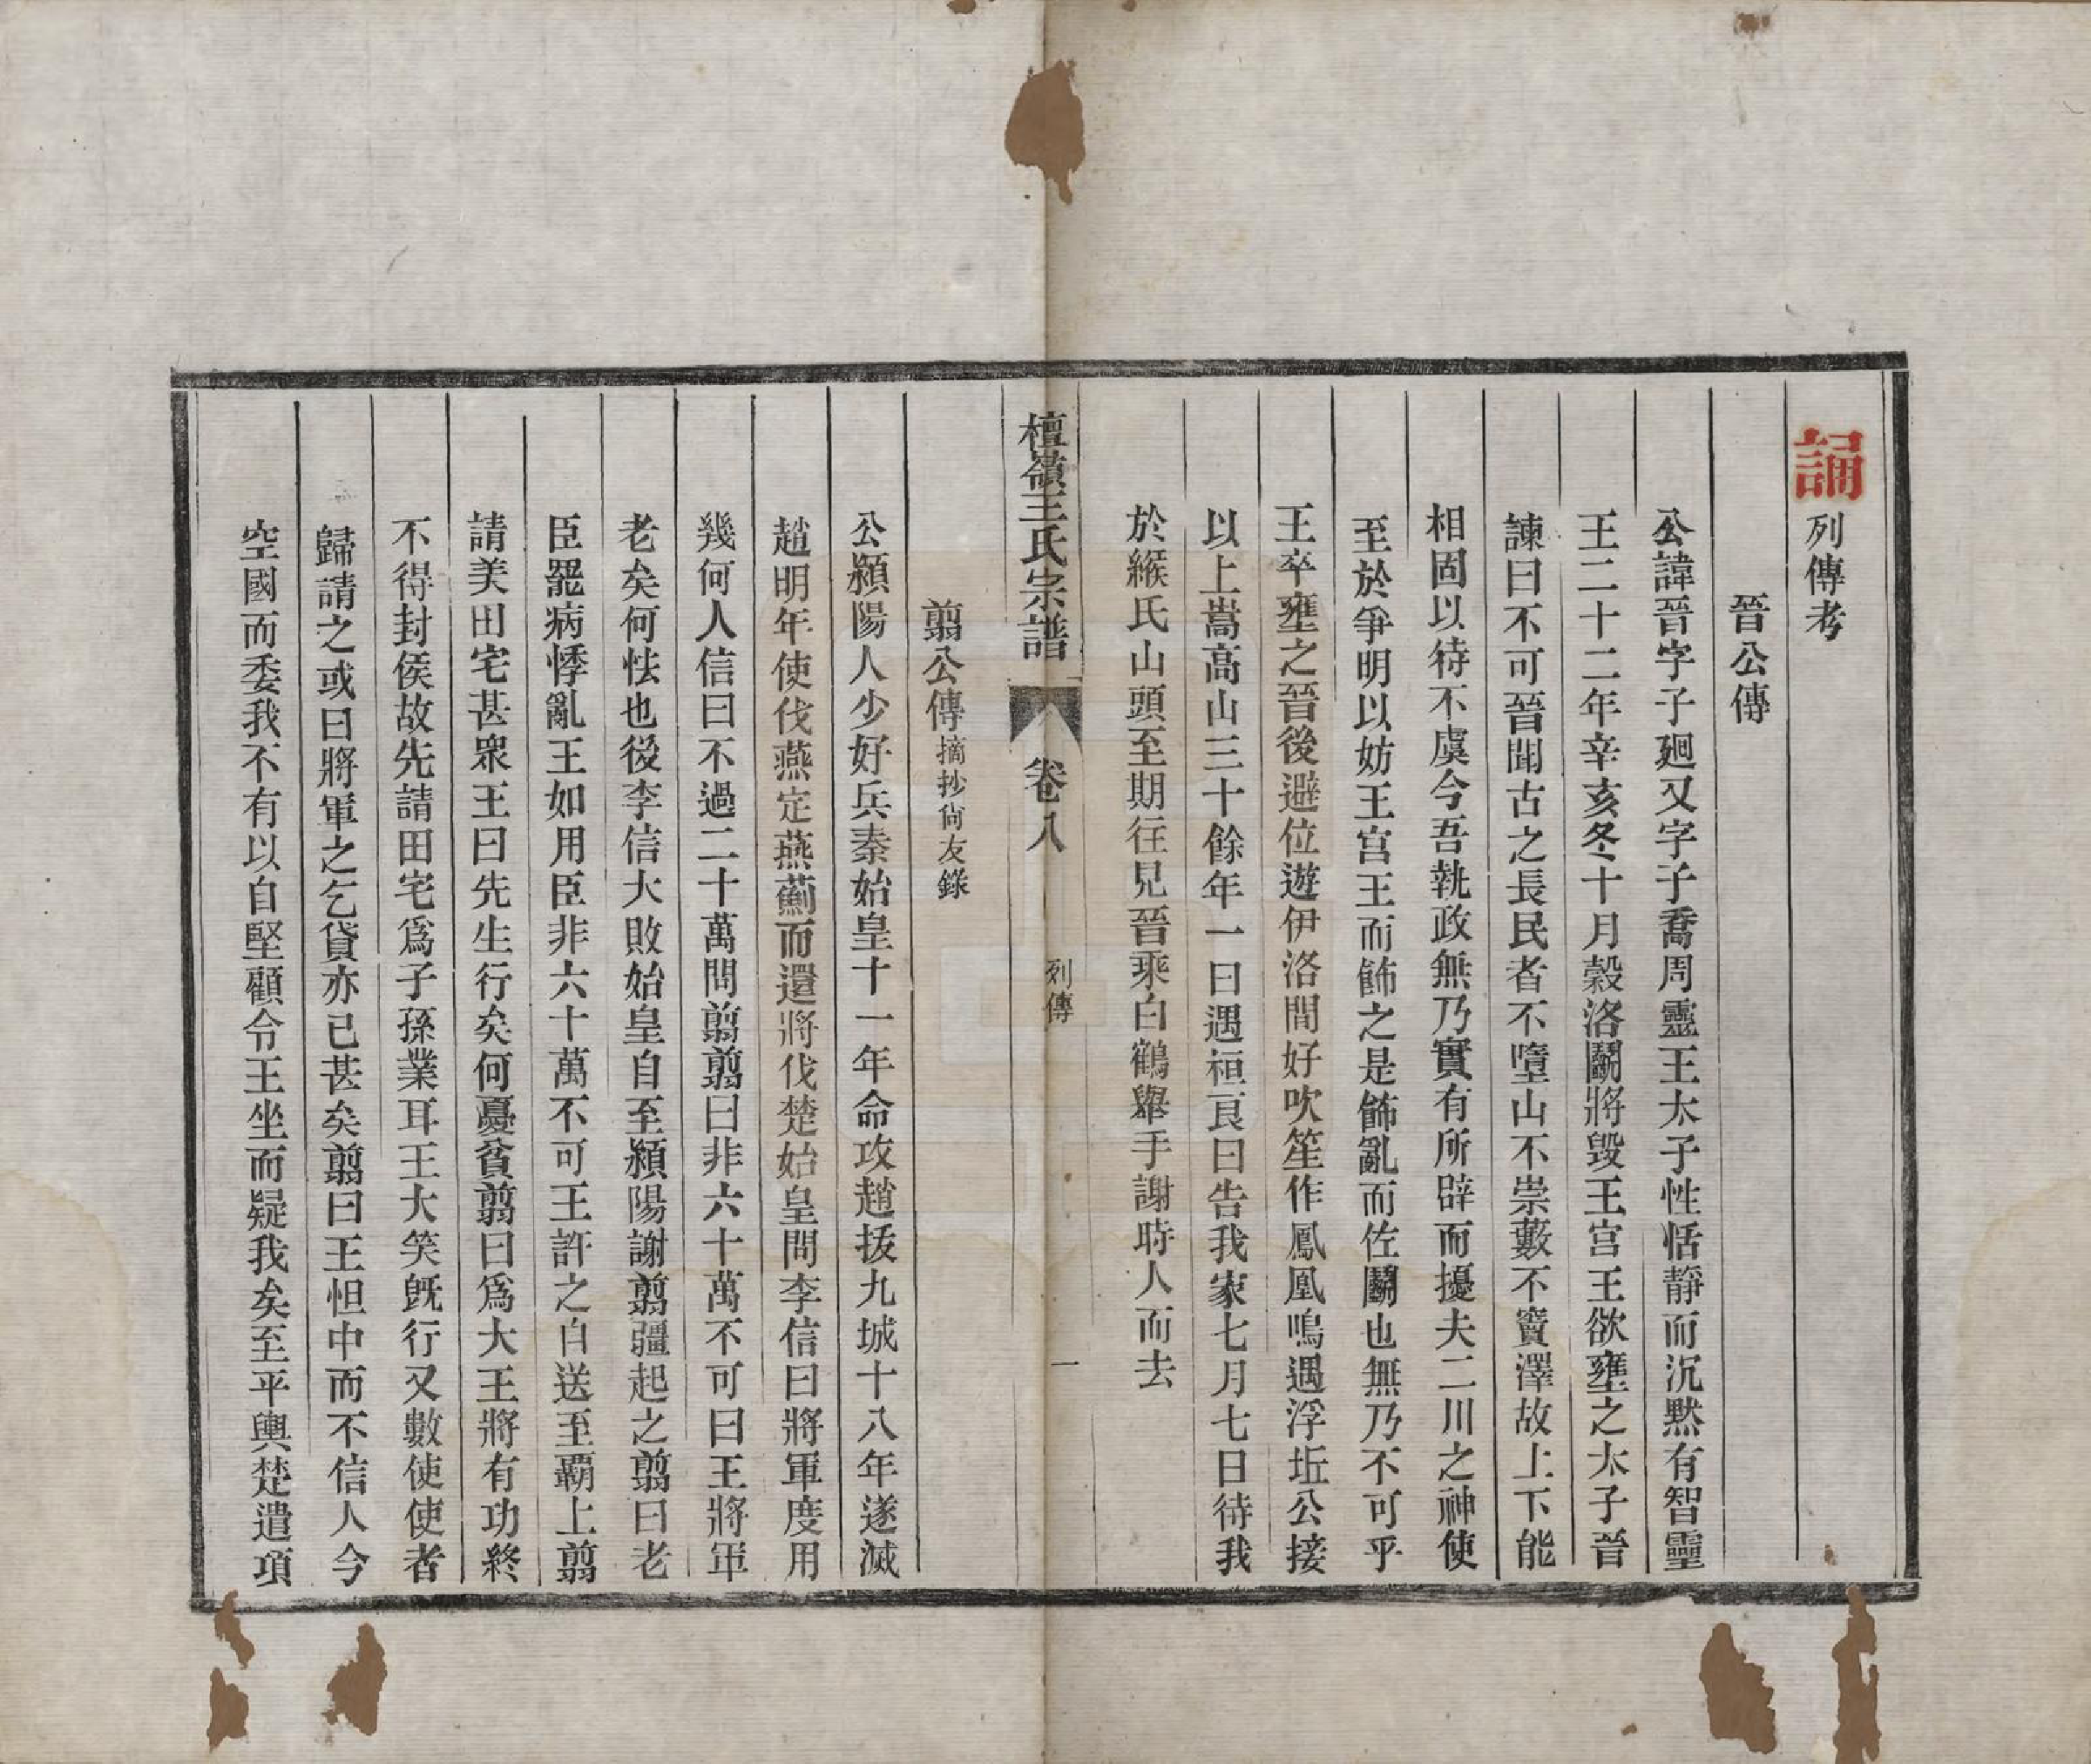 誦
列傳考
晉公傳
公諱晉字子廻又字子喬周靈王太子性恬靜而沉默有智靈
王二十二年辛亥冬十月穀洛鬭將毀王宮王欲壅之太子晉
諫曰不可晉聞古之長民者不墮山不崇藪不竇澤故上下能
相固以待不虞今吾執政無乃實有所辟而擾夫二川之神使
至於爭明以妨王宮王而飾之是飾亂而佐鬭也無乃不可乎
王卒壅之晉後避位遊伊洛間好吹笙作鳳凰鳴遇浮坵公接
以上嵩高山三十餘年一日遇桓良曰告我家七月七日待我
於緱氏山頭至期徃見晉乘白鶴舉手謝時人而去
檀嶺王氏宗譜 卷八 列傳 一
翦公傳摘抄尙友錄
公潁陽人少好兵秦始皇十一年命攻趙拔九城十八年遂滅
趙明年使伐燕定燕薊而還將伐楚始皇問李信曰將軍度用
幾何人信曰不過二十萬問翦翦曰非六十萬不可曰王將軍
老矣何怯也後李信大敗始皇自至潁陽謝翦疆起之翦曰老
臣罷病悸亂王如用臣非六十萬不可王許之自送至霸上翦
請美田宅甚衆王曰先生行矣何憂貧翦曰爲大王將有功終
不得封侯故先請田宅爲子孫業耳王大笑旣行又數使使者
歸請之或曰將軍之乞貸亦已甚矣翦曰王怚中而不信人今
空國而委我不有以自堅顧令王坐而疑我矣至平輿楚遣項